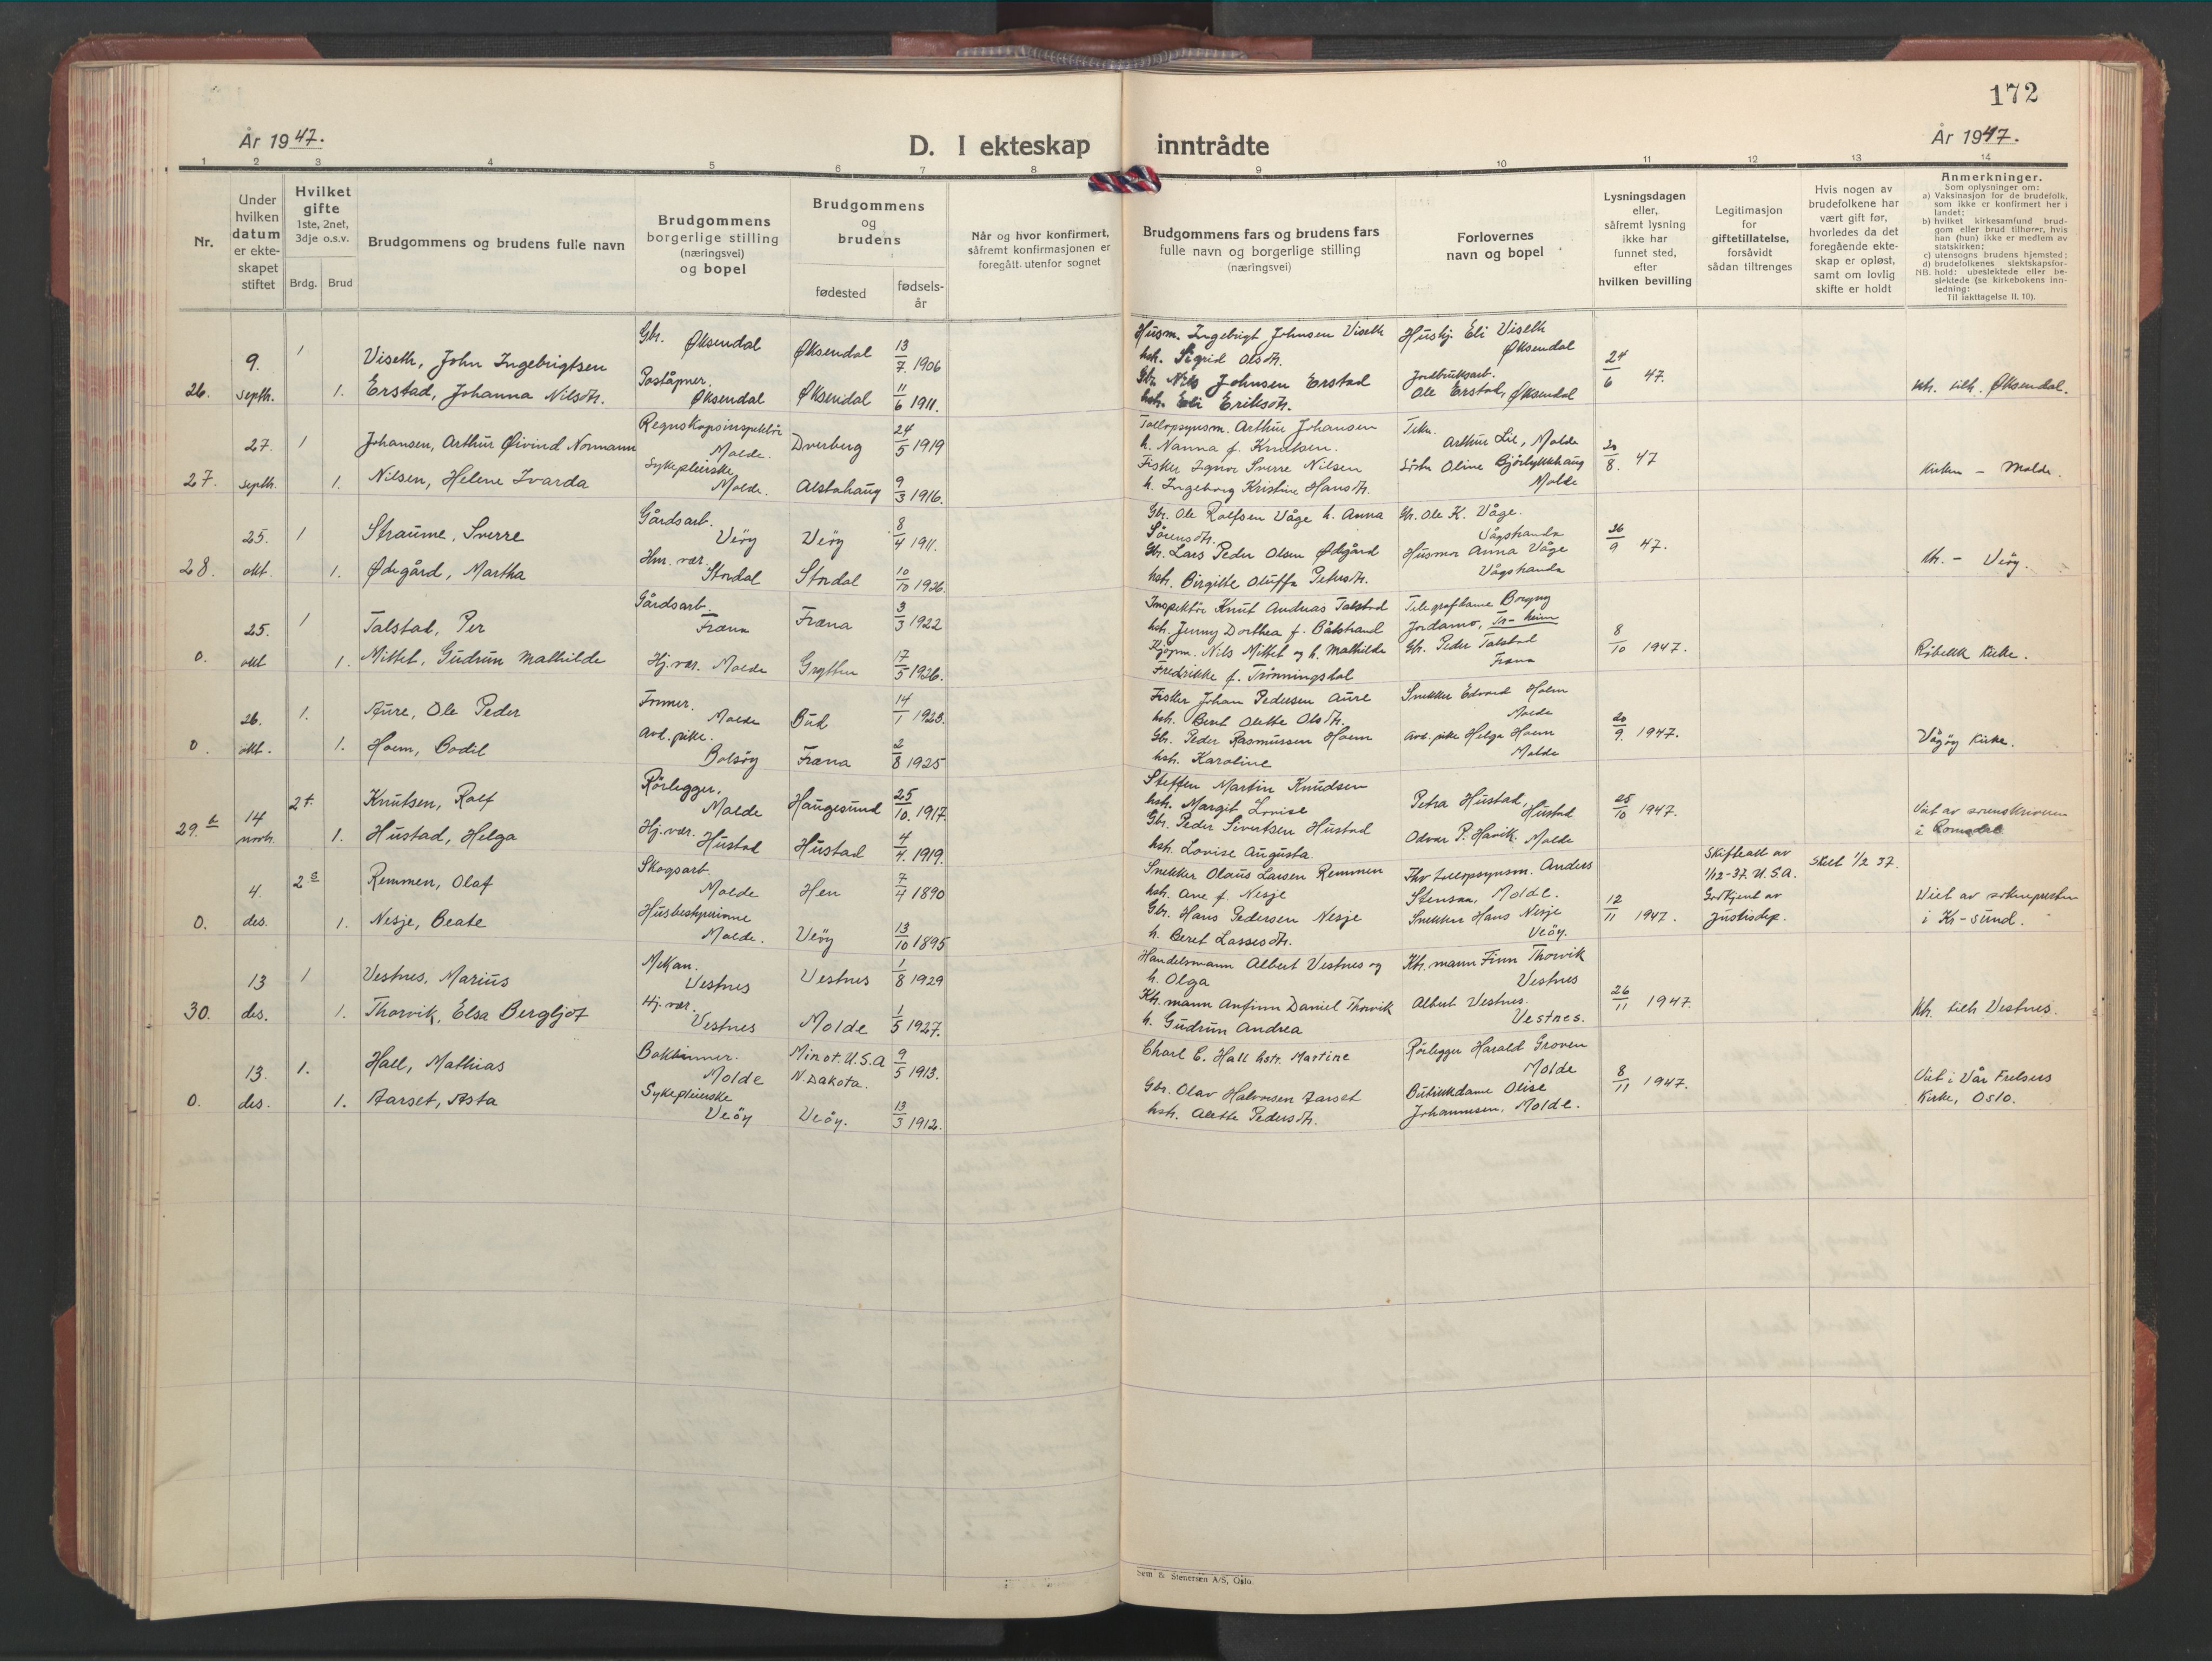 172
År 1947.
D. I ekteskap inntrådte
År 1947.
1 2 3 4 5 6 7 8 9 10 11 12 13 14
Nr.
Under hvilken datum er ekteskapet stiftet
Hvilket gifte 1ste, 2net, 3dje o.s.v.
Brdg. Brud
Brudgommens og brudens fulle navn
Brudgommens borgerlige stilling (næringsvei) og bopel
Brudgommens og brudens
fødested
fødselsår
Når og hvor konfirmert, såfremt konfirmasjonen er foregått utenfor sognet
Brudgommens fars og brudens fars fulle navn og borgerlige stilling (næringsvei)
Forlovernes navn og bopel
Lysningsdagen eller, såfremt lysning ikke har funnet sted, efter hvilken bevilling
Legitimasjon for giftetillatelse, forsåvidt sådan tiltrenges
Hvis nogen av brudefolkene har vært gift før, hvorledes da det foregående ekteskap er opløst, samt om lovlig skifte er holdt
Anmerkninger.
Som oplysninger om:
a) Vaksinasjon for de brudefolk, som ikke er konfirmert her i landet;
b) hvilket kirkesamfund brudgom eller brud tilhører, hvis han (hun) ikke er medlem av statskirken;
c) utensogns brudens hjemsted;
d) brudefolkenes slektskapsforhold: ubeslektede eller beslektede (se kirkebokens innledning:
NB. Til iakttagelse II. 10).
9. 1 Viseth, John Ingebrigtsen Gbr. Øksendal Øksendal 13/7 1906 Husm. Ingebrigt Johnsen Viseth hstr. Sigrid Olsdtr. Hushj. Eli Viseth Øksendal 24/6 47.
26. septb. 1. Erstad, Johanna Nilsdtr. Poståpner. Øksendal Øksendal 11/6 1911. Gbr. Nils Johnsen Erstad hstr. Eli Eriksdtr. Jordbruksarb. Ole Erstad, Øksendal Øksendal.
27. 1 Johansen, Arthur Øivind Normann Regnskapsinspektör Molde. Dverberg 24/5 1919 Tollopsynsm. Arthur Johansen h. Nanna f. Knudsen. Arthur Lie, Molde 20/8. 47
27. septb. 1. Nilsen, Helene Ivarda Sykepleierske Molde. Alstahaug 9/3 1916. Fisker Ingvar Sverre Nilsen h. Ingeborg Kristine Hansdtr. Oline Bjørlykkhaug Molde Kirken – Molde.
25. 1 Straume, Sverre Gårdsarb. Veöy Veöy 8/4 1911. Gbr. Ole Rolfsen Våge h. Anna Sörensdtr. Gbr. Ole K. Våge. Vågstranda 26/9 47.
28. okt. 1. Ødegård, Martha Hm. vær. Stordal Stordal 10/10 1926. Gbr. Lars Peder Olsen Ødegård hstr. Birgitte Oluffa Petersdtr. Husmor Anna Våge Vågstranda Veöy.
25. 1 Talstad, Per Gårdsarb. Fræna Fræna 3/3 1922 Inspektör Knut Andreas Talstad hstr. Jenny Dorthea f. Båtstrand Telegrafdame Borgny Jordamo, Tr-heim 8/10 1947.
0. okt 1. Mittet, Gudrun Mathilde Hj. vær. Molde Grytten 17/5 1926. Kjøpm. Nils Mittet og h. Mathilde Fredrikke f. Trönningsdal Gbr. Peder Talstad Fræna Røbekk Kirke.
26. 1. Aure, Ole Peder Former. Molde Bud 14/1 1923. Fisker Johan Pedersen Aure hstr. Beret Olette Olsdtr. Snekker Edvard Hoem Molde 20/9 1947.
0. okt. 1. Hoem, Bodil Avd. pike. Bolsöy Fræna 2/8 1925 Gbr. Peder Rasmussen Hoem hstr. Karoline Avd. pike Helga Hoem Molde Vågöy Kirke.
14 2t Knutsen, Rolf Rörlegger. Molde Haugesund 25/10. 1917. Steffen Martin Knudsen hstr. Margit Lovise Petra Hustad, Hustad 25/10 1947. Viet av sorenskriveren i Romsdal
29. novb. 1. Hustad, Helga Hj. vær. Hustad Hustad 4/4. 1919. Gbr. Peder Sivertsen Hustad hstr. Lovise Augusta. Odvar P. Havik. Molde
4. 2 Remmen, Olaf Skogsarb. Molde Hen 7/4 1890 Snekker Olaus Larsen Remmen hstr. Ane f. Nesje Anders Stensaa, Molde. 12/11 1947. Skifteatt av 1/12-37. U.S.A. Godkjent av Justisdep. Skilt 1/2 37.
0. des. 1. Nesje, Beate Husbestyrerinne Molde. Veöy 13/10 1895 Gbr. Hans Pedersen Nesje h. Beret Lassesdtr. Snekker Hans Nesje Veöy. Viet av soknepresten i Kr-sund.
13 1 Vestnes, Marius Mekan. Vestnes Vestnes 1/8 1929 Handelsmann Albert Vestnes og h. Olga Ktr. mann Finn Thorvik Vestnes 26/11 1947.
30. des. 1. Thorvik, Elsa Bergljot Hj. vær. Vestnes Molde 1/5 1927. Ktr. mann Anfinn Daniel Thorvik h. Gudrun Andrea Albert Vestnes. Vestnes. Vestnes.
13. 1. Hall, Mathias Molde Minot. U.S.A N. Dakota. 9/5 1913. Charl C. Hall hstr. Martine Rörlegger Harald Groven Molde 8/11 1947.
0. des. 1. Aarset, Asta Sykepleierske Veöy Veöy. 13/3 1912. Gbr. Olav Halvorsen Aarset hstr. Alette Pedersdtr. Butikkdame Olise Johannesen, Molde. Viet i Vår Frelsers Kirke, Oslo.
Sem & Stenersen A/S, Oslo.